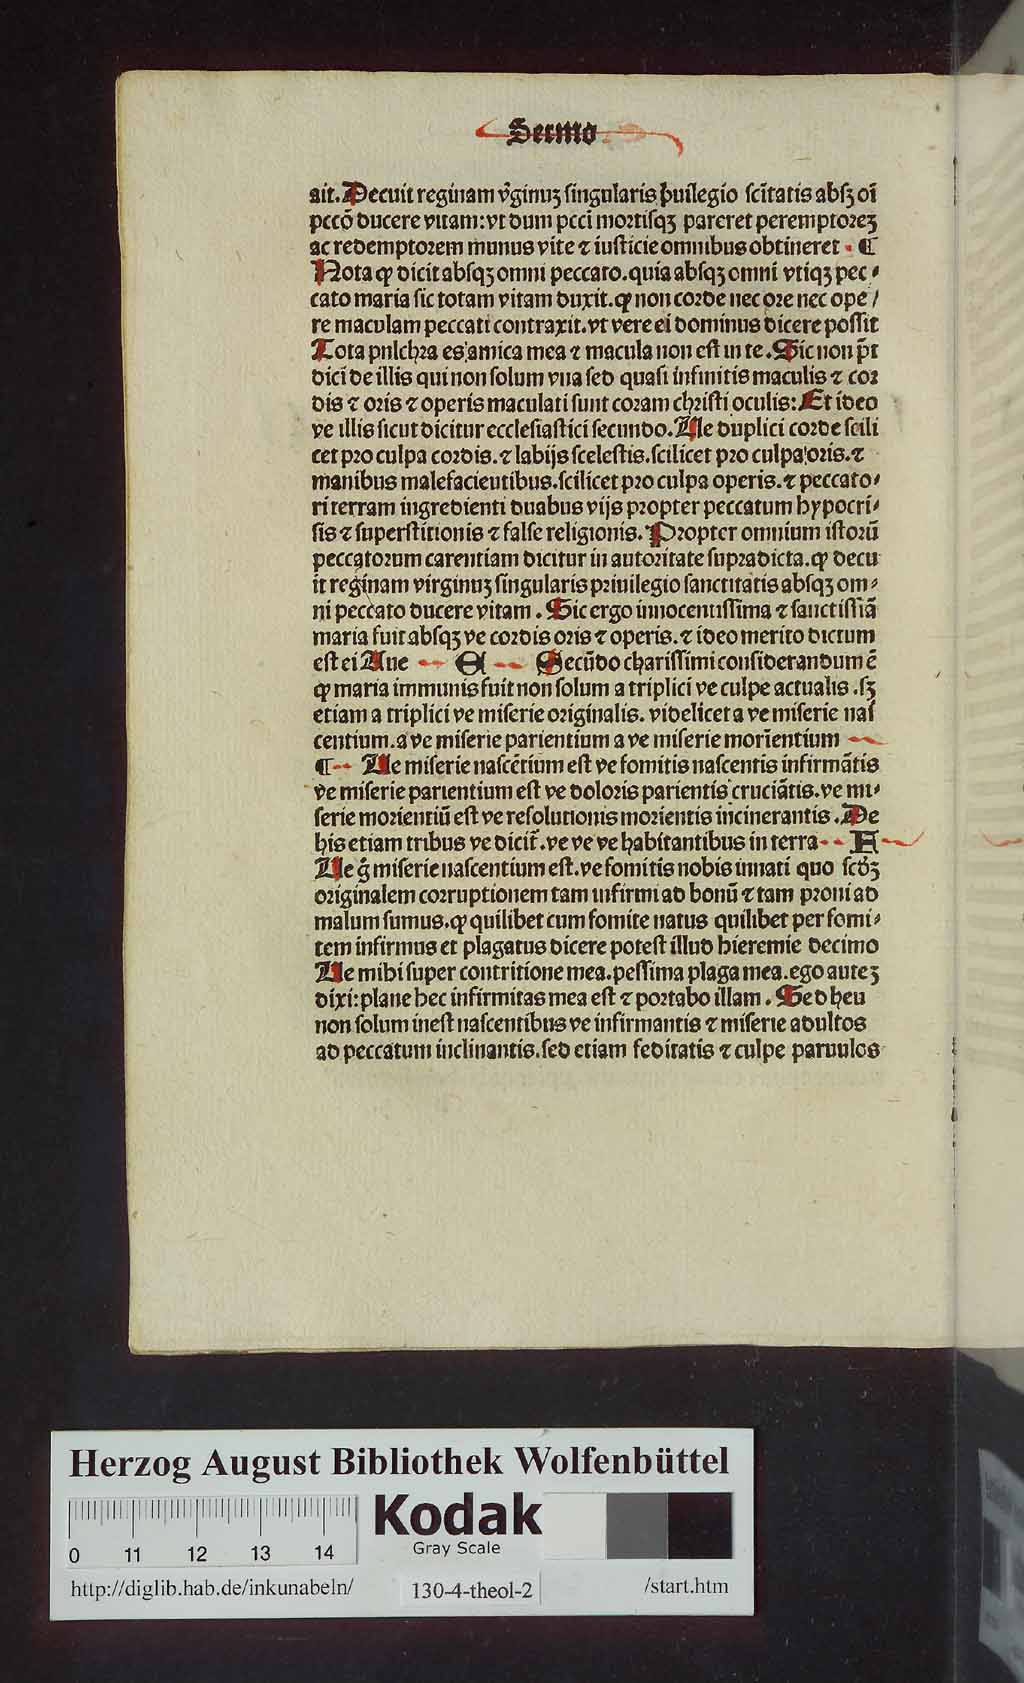 Sermo
ait. Decuit reginam v̄ginuꝫ singularis p̱uilegio sc̄itatis absqꝫ oī
pccō ducere vitam: vt dum pcci mortisqꝫ pareret peremptoreꝫ
ac redemptorem munus vite ⁊ iusticie omnibus obtineret. ¶
Nota ꝙ dicit absqꝫ omni peccato. quia absqꝫ omni vtiqꝫ pec-
cato maria sic totam vitam duxit. ꝙ non corde nec ore nec ope/
re maculam peccati contraxit. vt vere ei dominus dicere possit
Tota pnlchra es amica mea ⁊ macula non est in te. Sic non p̄t
dici de illis qui non solum vna sed quasi infinitis maculis ⁊ cor
dis ⁊ oris ⁊ operis maculati sunt coram christi oculis: Et ideo
ve illis sicut dicitur ecclesiastici secundo. Ue duplici corde scili
cet pro culpa cordis. ⁊ labijs scelestis. scilicet pro culpa oris. ⁊
manibus malefacieutibus. scilicet pro culpa operis. ⁊ peccato-
ri terram ingredienti duabus vijs propter peccatum hypocri-
sis ⁊ superstitionis ⁊ false religionis. Propter omnium istorū
peccatorum carentiam dicitur in autoritate supradicta. ꝙ decu
it reginam virginuꝫ singularis priuilegio sanctitatis absqꝫ om-
ni peccato ducere vitam. Sic ergo innocentissima ⁊ sanctissīa
maria fuit absqꝫ ve cordis oris ⁊ operis. ⁊ ideo merito dictum
est ei Aue Secūdo charissimi considerandum ē
ꝙ maria immunis fuit non solum a triplici ve culpe actualis. sꝫ
etiam a triplici ve miserie originalis. videlicet a ve miserie nas
centium. a ve miserie parientium a ve miserie morientium
¶ Ue miserie nascētium est ve fomitis nascentis infirmātis
ve miserie parientium est ve doloris parientis cruciātis. ve mi-
serie morientiū est ve resolutionis morientis incinerantis. De
his etiam tribus ve dicit̄. ve ve ve habitantibus in terra A
Ue g̊ miserie nascentium est. ve fomitis nobis innati quo scd̄ꝫ
originalem corruptionem tam infirmi ad bonū ⁊ tam proni ad
malum sumus. ꝙ quilibet cum fomite natus quilibet per fomi-
tem infirmus et plagatus dicere potest illud hieremie decimo
Ue mihi super contritione mea. pessima plaga mea. ego auteꝫ
dixi: plane hec infirmitas mea est ⁊ portabo illam. Sed heu
non solum inest nascentibus ve infirmantis ⁊ miserie adultos
ad peccatum inclinantis. sed etiam feditatis ⁊ culpe paruulos
Herzog August Bibliothek Wolfenbüttel
Kodak
Gray Scale
0 11 12 13 14
http://diglib.hab.de/inkunabeln/ 130-4-theol-2 /start.htm